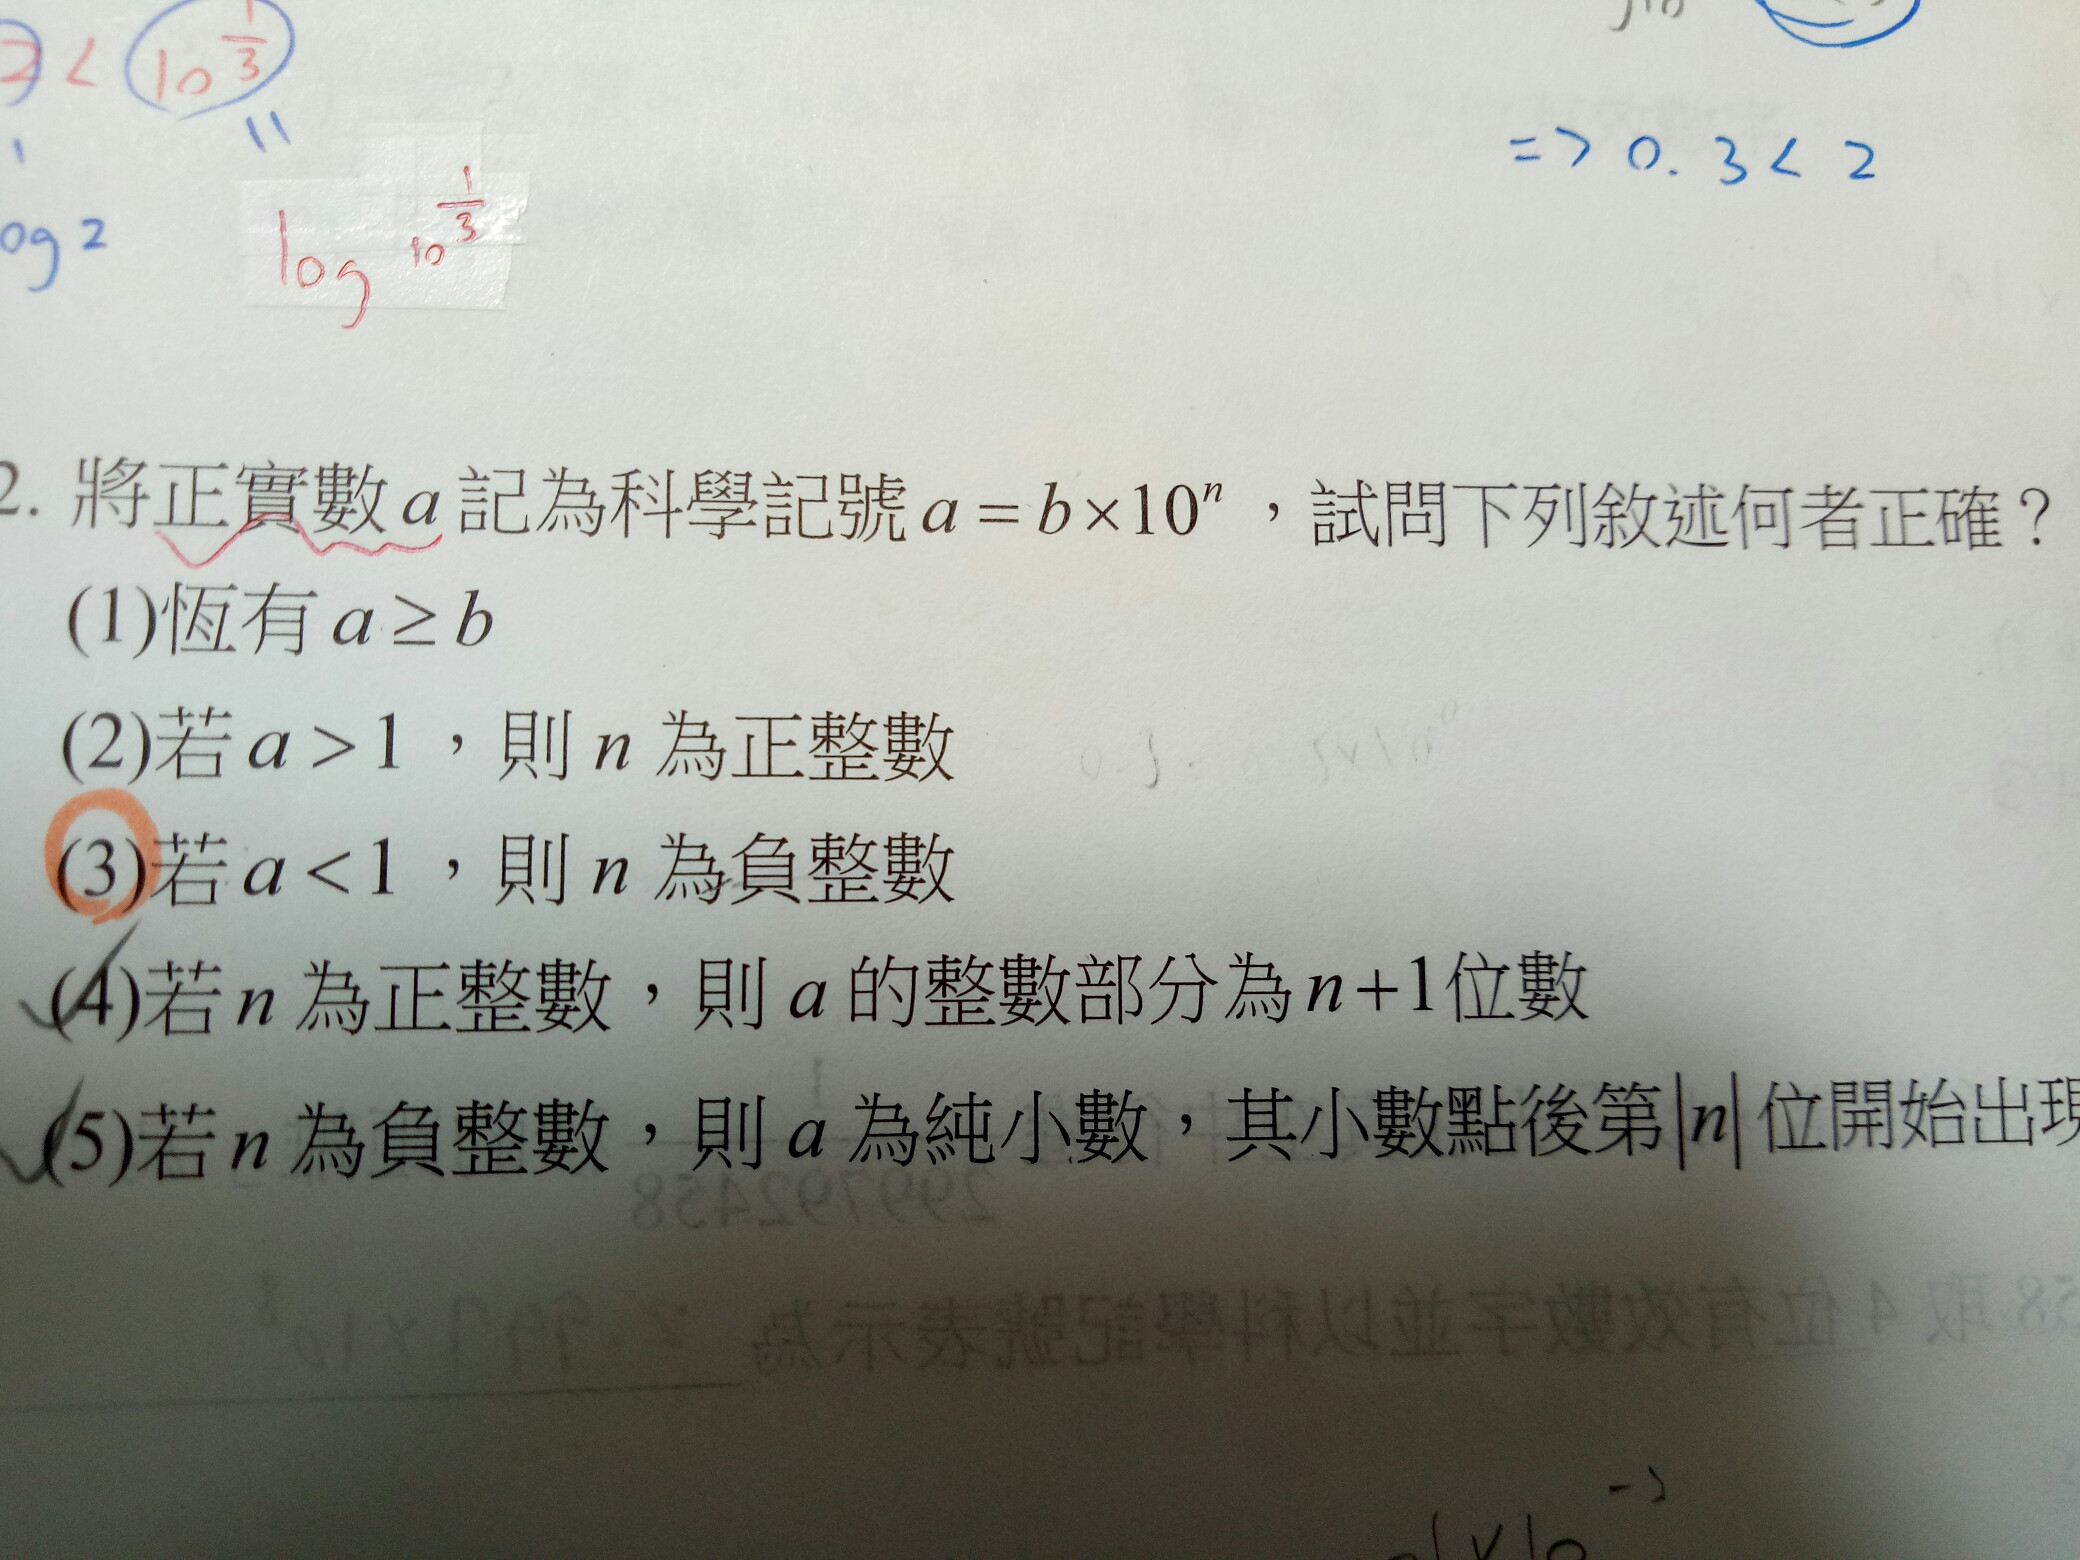 2 < 10^{1/3}
=> 0.3 < 2
log 10^{1/3}
2. 將正實數 a 記為科學記號 a = b×10ⁿ，試問下列敘述何者正確？
(1)恆有 a ≥ b
(2)若 a > 1，則 n 為正整數
(3)若 a < 1，則 n 為負整數
(4)若 n 為正整數，則 a 的整數部分為 n+1位數
(5)若 n 為負整數，則 a 為純小數，其小數點後第|n| 位開始出現
299792458
取 4 位有效數字並以科學記號表示為